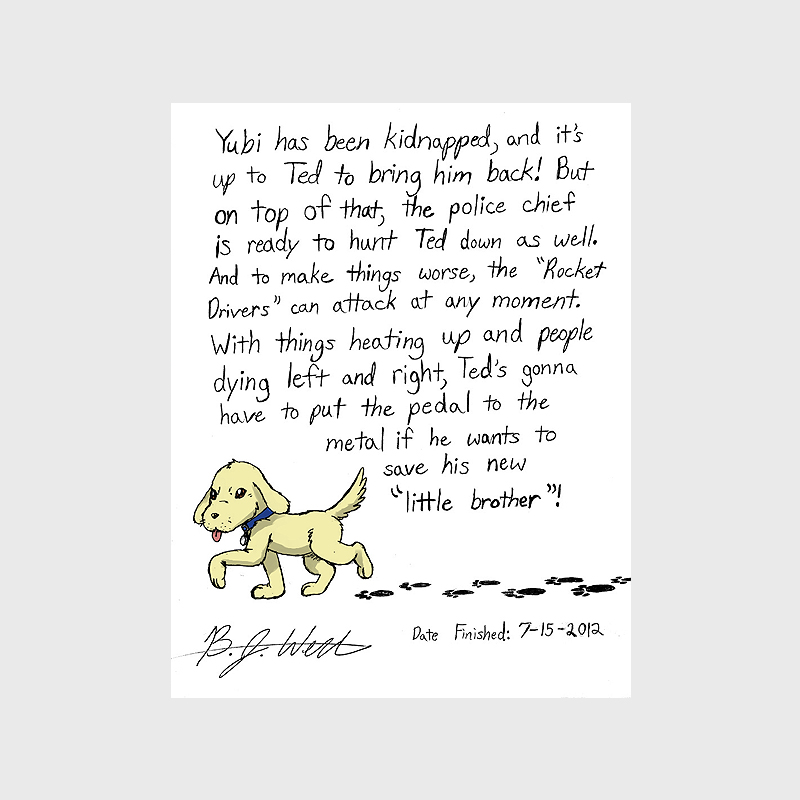 Yubi has been kidnapped, and it's
up to Ted to bring him back! But
on top of that, the police chief
is ready to hunt Ted down as well.
And to make things worse, the "Rocket
Drivers" can attack at any moment.
With things heating up and people
dying left and right, Ted's gonna
have to put the pedal to the
metal if he wants to
save his new
"little brother"!
B. J. West
Date Finished: 7-15-2012